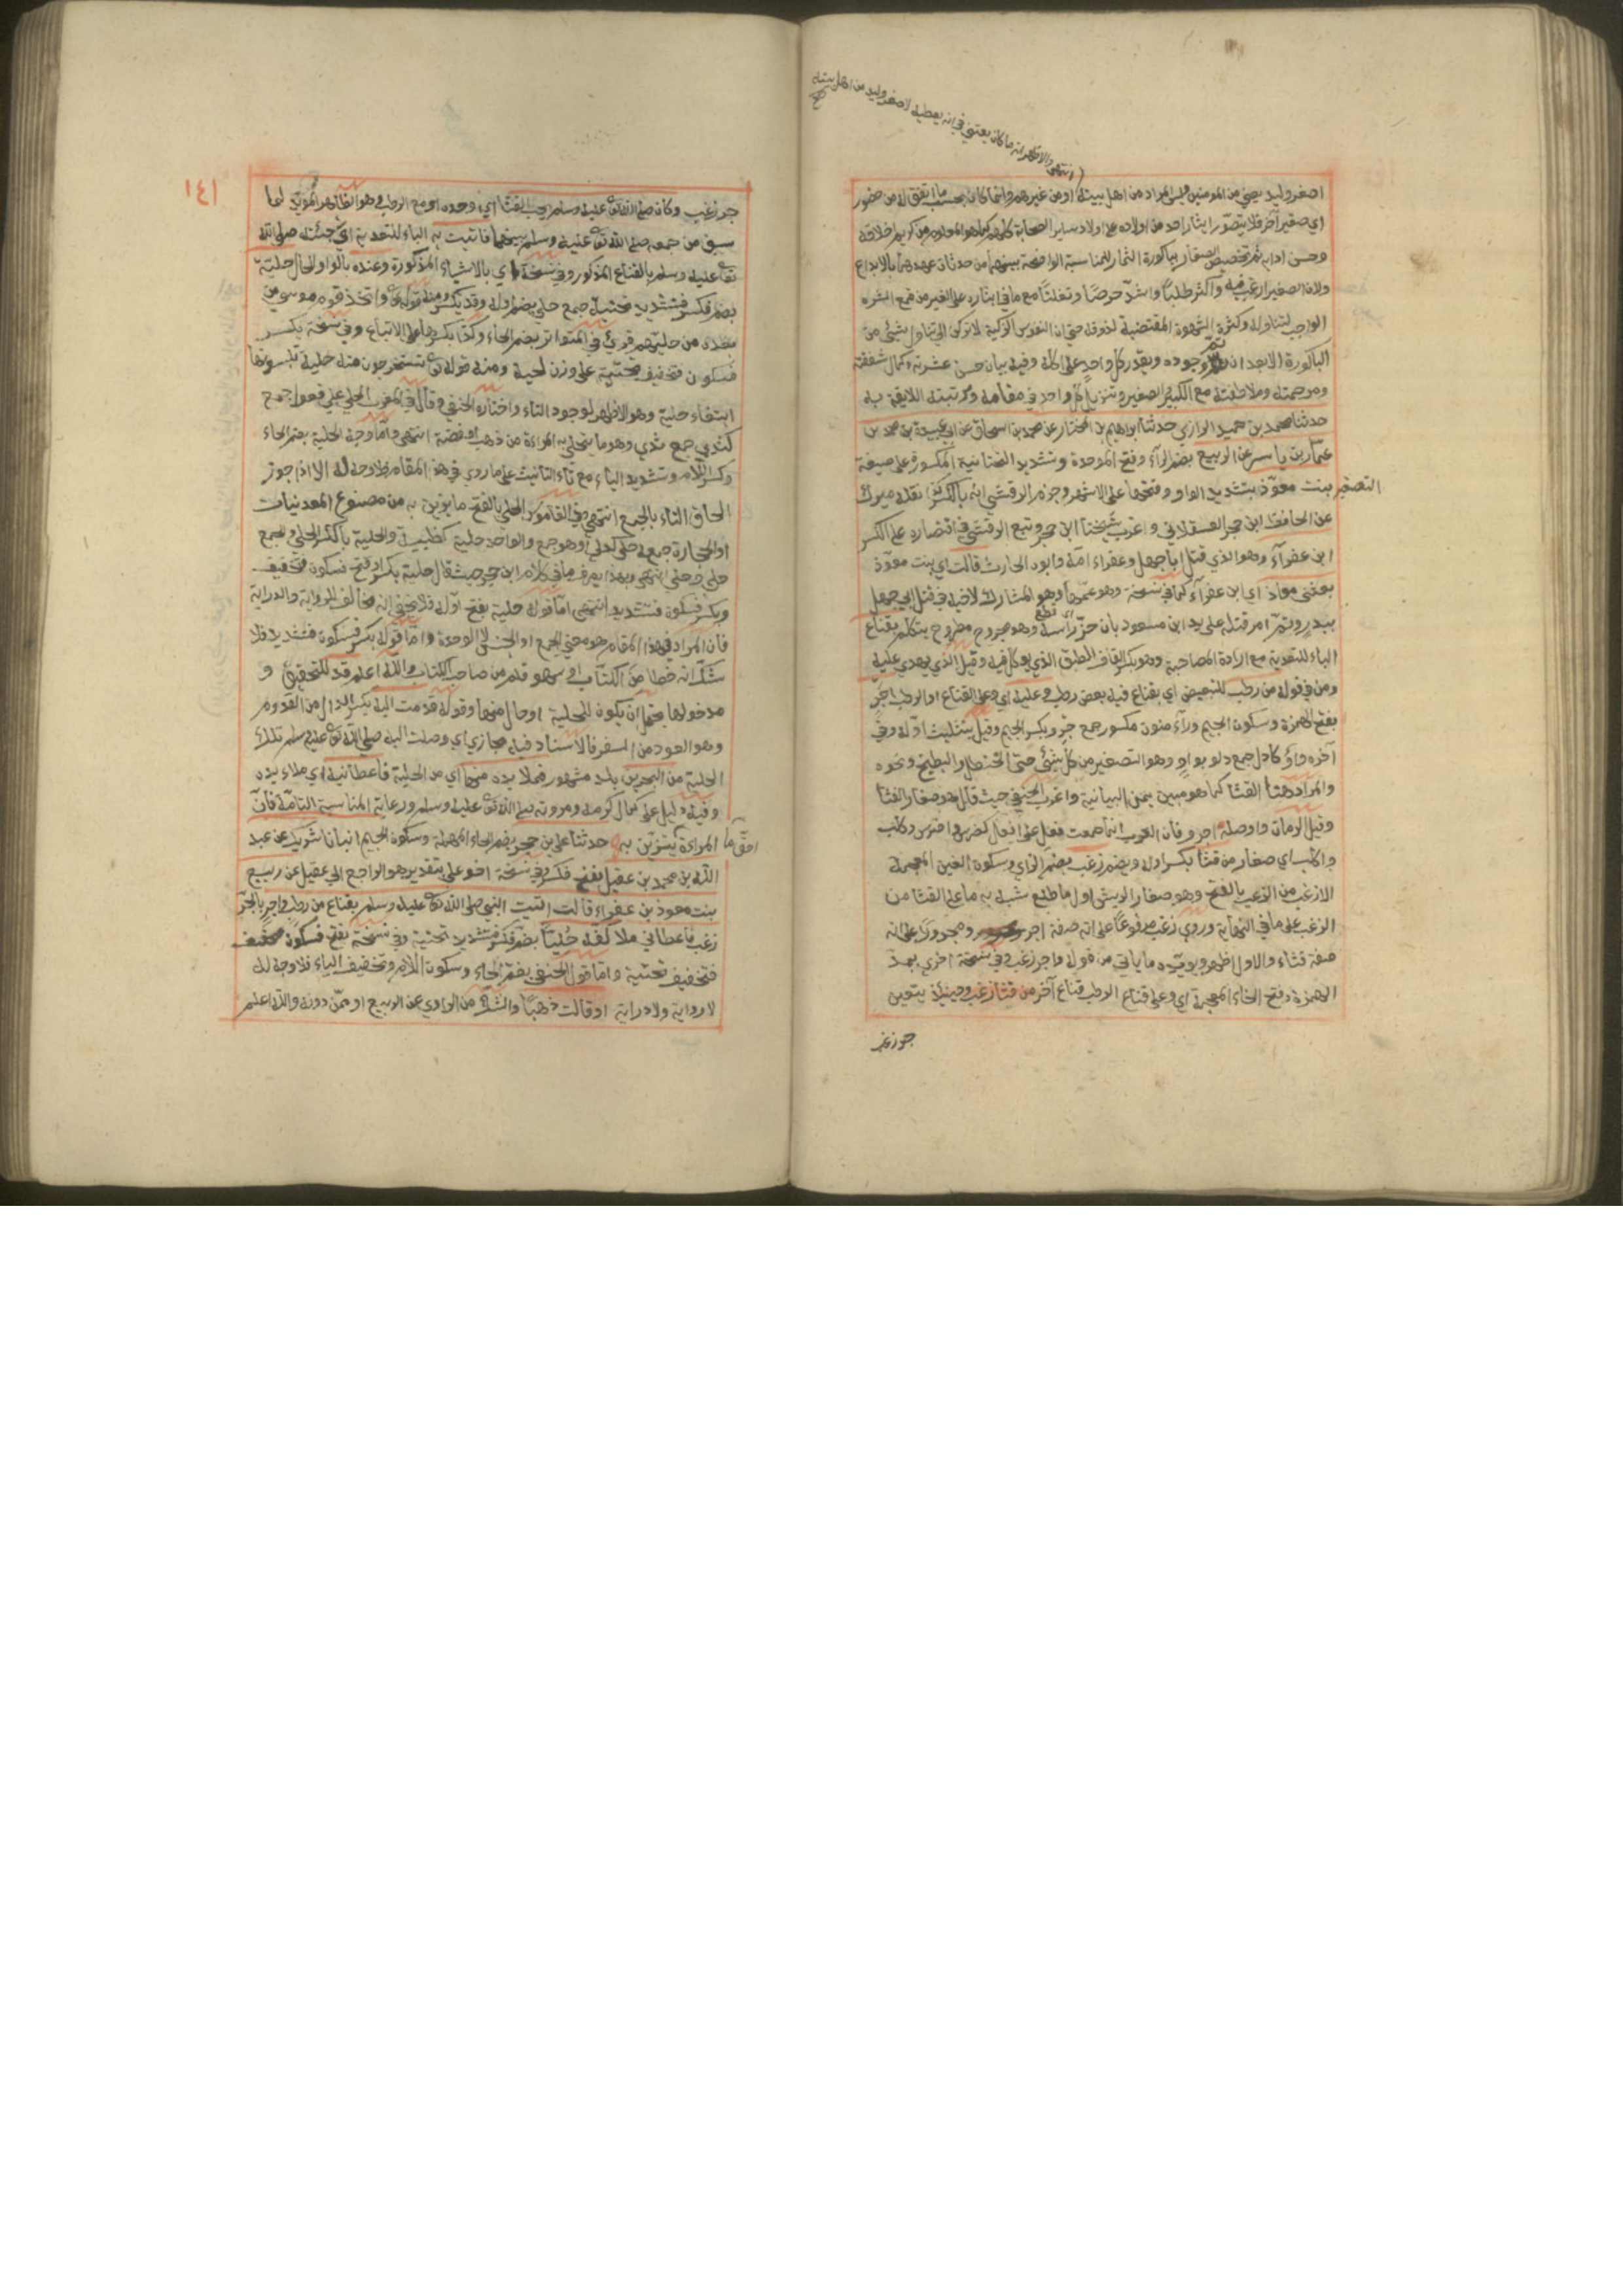 انتهى والاظهر انه ما كان يعتني في انه يعطيه لاصغر وليد من اهل بيته
صح
اصغر وليد يعني من المومنين فليس المراد من اهل بيته او من غيرهم وانما كان بحسب ما اتفق له من حضور
اي صغير آخر فلا يتصور ايثار احد من اولاده على اولاد ساير الصحابة كلهم كما هو المعلوم من كريم اخلاقه
وحسن ادابه ثم تخصيص الصغار بباكورة الثمار للمناسبة الواضحة بينهما من حدثان عهدهما بالابداع
ولان الصغير ارغب فيه واكثر طلبا واشد حرصا وتفلتا مع ما في ايثاره على الغير من قمع الشره
الواجب لتناوله وكثرة الشهوة المقتضية لذوقه حتى ان النفوس الزكية لا تركن الى تناول شيء من
الباكورة الا بعد ان يعم وجوده ويقدر كل واحد على اكله وفيه بيان حسن عشرته وكمال شفقته
ومرحمته وملاطفته مع الكبير والصغير وتنزيل كل واحد في مقامه ومرتبته اللايقة به
حدثنا محمد بن حميد الرازي حدثنا ابراهيم بن المختار عن محمد بن اسحاق عن ابي عبيدة بن محمد بن
عمار بن ياسر عن الربيع بضم الراء وفتح الموحدة وتشديد التحتانية المكسورة على صيغة
التصغير بنت معوذ بتشديد الواو وفتحها على الاشهر وجزم الوقشي انه بالكسر نقله ميرك
عن الحافظ ابن حجر العسقلاني واغرب شيخنا ابن حجر وتبع الوقشي في اقتصاره على الكسر
ابن عفراء وهو الذي قتل ابا جهل وعفراء امه وابوه الحارث قالت اي بنت معوذ
بعثني معاذ اي ابن عفراء كما في نسخة وهو عمها وهو المشارك لاخيه في قتل ابي جهل
ببدر وتم امر قتله على يد ابن مسعود بان حز اي قطع راسه وهو مجروح مطروح يتكلم بقناع
الباء للتعدية مع ارادة المصاحبة وهو بكسر القاف الطبق الذي يوكل فيه وقيل الذي يهدى عليه
ومن في قوله من رطب للتبعيض اي بقناع فيه بعض رطب وعليه اي وعلى القناع او الرطب اجر
بفتح الهمزة وسكون الجيم وراء منون مكسور جمع جرو بكسر الجيم وقيل بتثليث اوله وفي
آخره واو كادل جمع دلو بواو وهو الصغير من كل شيء حتى الحنظل والبطيخ ونحوه
والمراد هنا القثا كما هو مبين بمن البيانية واغرب الحنفي حيث قال هو صغار القثا
وقيل الرمان واوصله اجرو فان العرب انما جمعت فعل على افعل كضرس واضرس وكلب
واكلب اي صغار من قثا بكسر اوله وبضم زغب بضم الزاي وسكون الغين المعجمة
الازغب من الزغب بالفتح وهو صغار الريش اول ما طلع شبه به ما على القثا من
الزغب على ما في النهاية وروي زغب مرفوعا على انه صفة اجر ومجرورا على انه
صفة قثاء والاول اظهر ويويده ما ياتي من قوله واجر زغب وفي نسخة اخرى بمد
الهمزة وفتح الخاء المعجمة اي وعلى قناع الرطب قناع آخر من قثا زغب وحينئذ يتعين
جر زغب
١٤١
جر زغب وكان صلى الله تعالى عليه وسلم يحب القثا اي وحده او مع الرطب وهو المويد لما
سبق من جمعه صلى الله تعالى عليه وسلم بينهما فاتيت به الباء للتعدية اي جئته صلى الله
تعالى عليه وسلم بالقناع المذكور وفي نسخة اي بالاشياء المذكورة وعنده بالواو للحال حلية
بضم فكسر فتشديد تحتية جمع حلي بضم اوله وقد يكسر ومنه قوله تعالى واتخذ قوم موسى من
بعده من حليهم قرئ في المتواتر بضم الحاء وكذا بكسرها على الاتباع وفي نسخة بكسر
فسكون فتخفيف تحتية على وزن لحية ومنه قوله تعالى تستخرجون منه حلية تلبسونها
ابتغاء حلية وهو الاظهر لوجود التاء واختاره الحنفي وقال في المغرب الحلي على فعول جمع
كثدي جمع ثدي وهو ما يتحلى به المراة من ذهب او فضة انتهى واما وجه الحلية بضم الحاء
وكسر اللام وتشديد الياء مع تاء التانيث على ما روي في هذا المقام فلا وجه له الا اذا جوز
الحاق التاء بالجمع انتهى وفي القاموس الحلي بالفتح ما يزين به من مصنوع المعدنيات
او الحجارة جمعه حلي كدلي او هو جمع والواحد حلية كظبية والحلية بالكسر الحلي والجمع
حلى وحلي انتهى وبهذا يعرف ما في كلام ابن حجر حيث قال حلية بكسر او فتح فسكون فتخفيف
وبكسر فسكون فتشديد انتهى اما قوله حلية بفتح اوله فلا يخفى انه مخالف للرواية والدراية
فان المراد في هذا المقام هو معنى الجمع او الجنس لا الوحدة واما قوله بكسر فسكون فتشديد فلا
شك انه خطا من الكتاب او سهو قلم من صاحب الكتاب والله اعلم قد للتحقيق و
مدخولها يحتمل ان يكون للحلية او حال منها وقوله قدمت اليه بكسر الدال من القدوم
وهو العود من السفر فالاسناد فيه مجازي اي وصلت اليه صلى الله تعالى عليه وسلم تلك
الحلية من البحرين بلد مشهور فملا يده منها اي من الحلية فاعطانيه اي ملاء يده
وفيه دليل على كمال كرمه ومروته صلى الله تعالى عليه وسلم ورعاية المناسبة التامة فان
المراءة احق ما يتزين به حدثنا علي بن حجر بضم الحاء المهملة وسكون الجيم انبانا شريك عن عبد
الله بن محمد بن عقيل بفتح فكسر وفي نسخة اخو علي بتقدير هو الراجع الى عقيل عن ربيع
بنت معوذ بن عفراء قالت اتيت النبي صلى الله تعالى عليه وسلم بقناع من رطب واجر بالجر
زغب فاعطاني ملا كفه حليا بضم فكسر فتشديد تحتية وفي نسخة بفتح فسكون
فتخفيف تحتية واما قول الحنفي بضم الحاء وسكون اللام وتخفيف الياء فلا وجه له
لا رواية ولا دراية او قالت ذهبا والشك من الراوي عن الربيع او ممن دونه والله اعلم